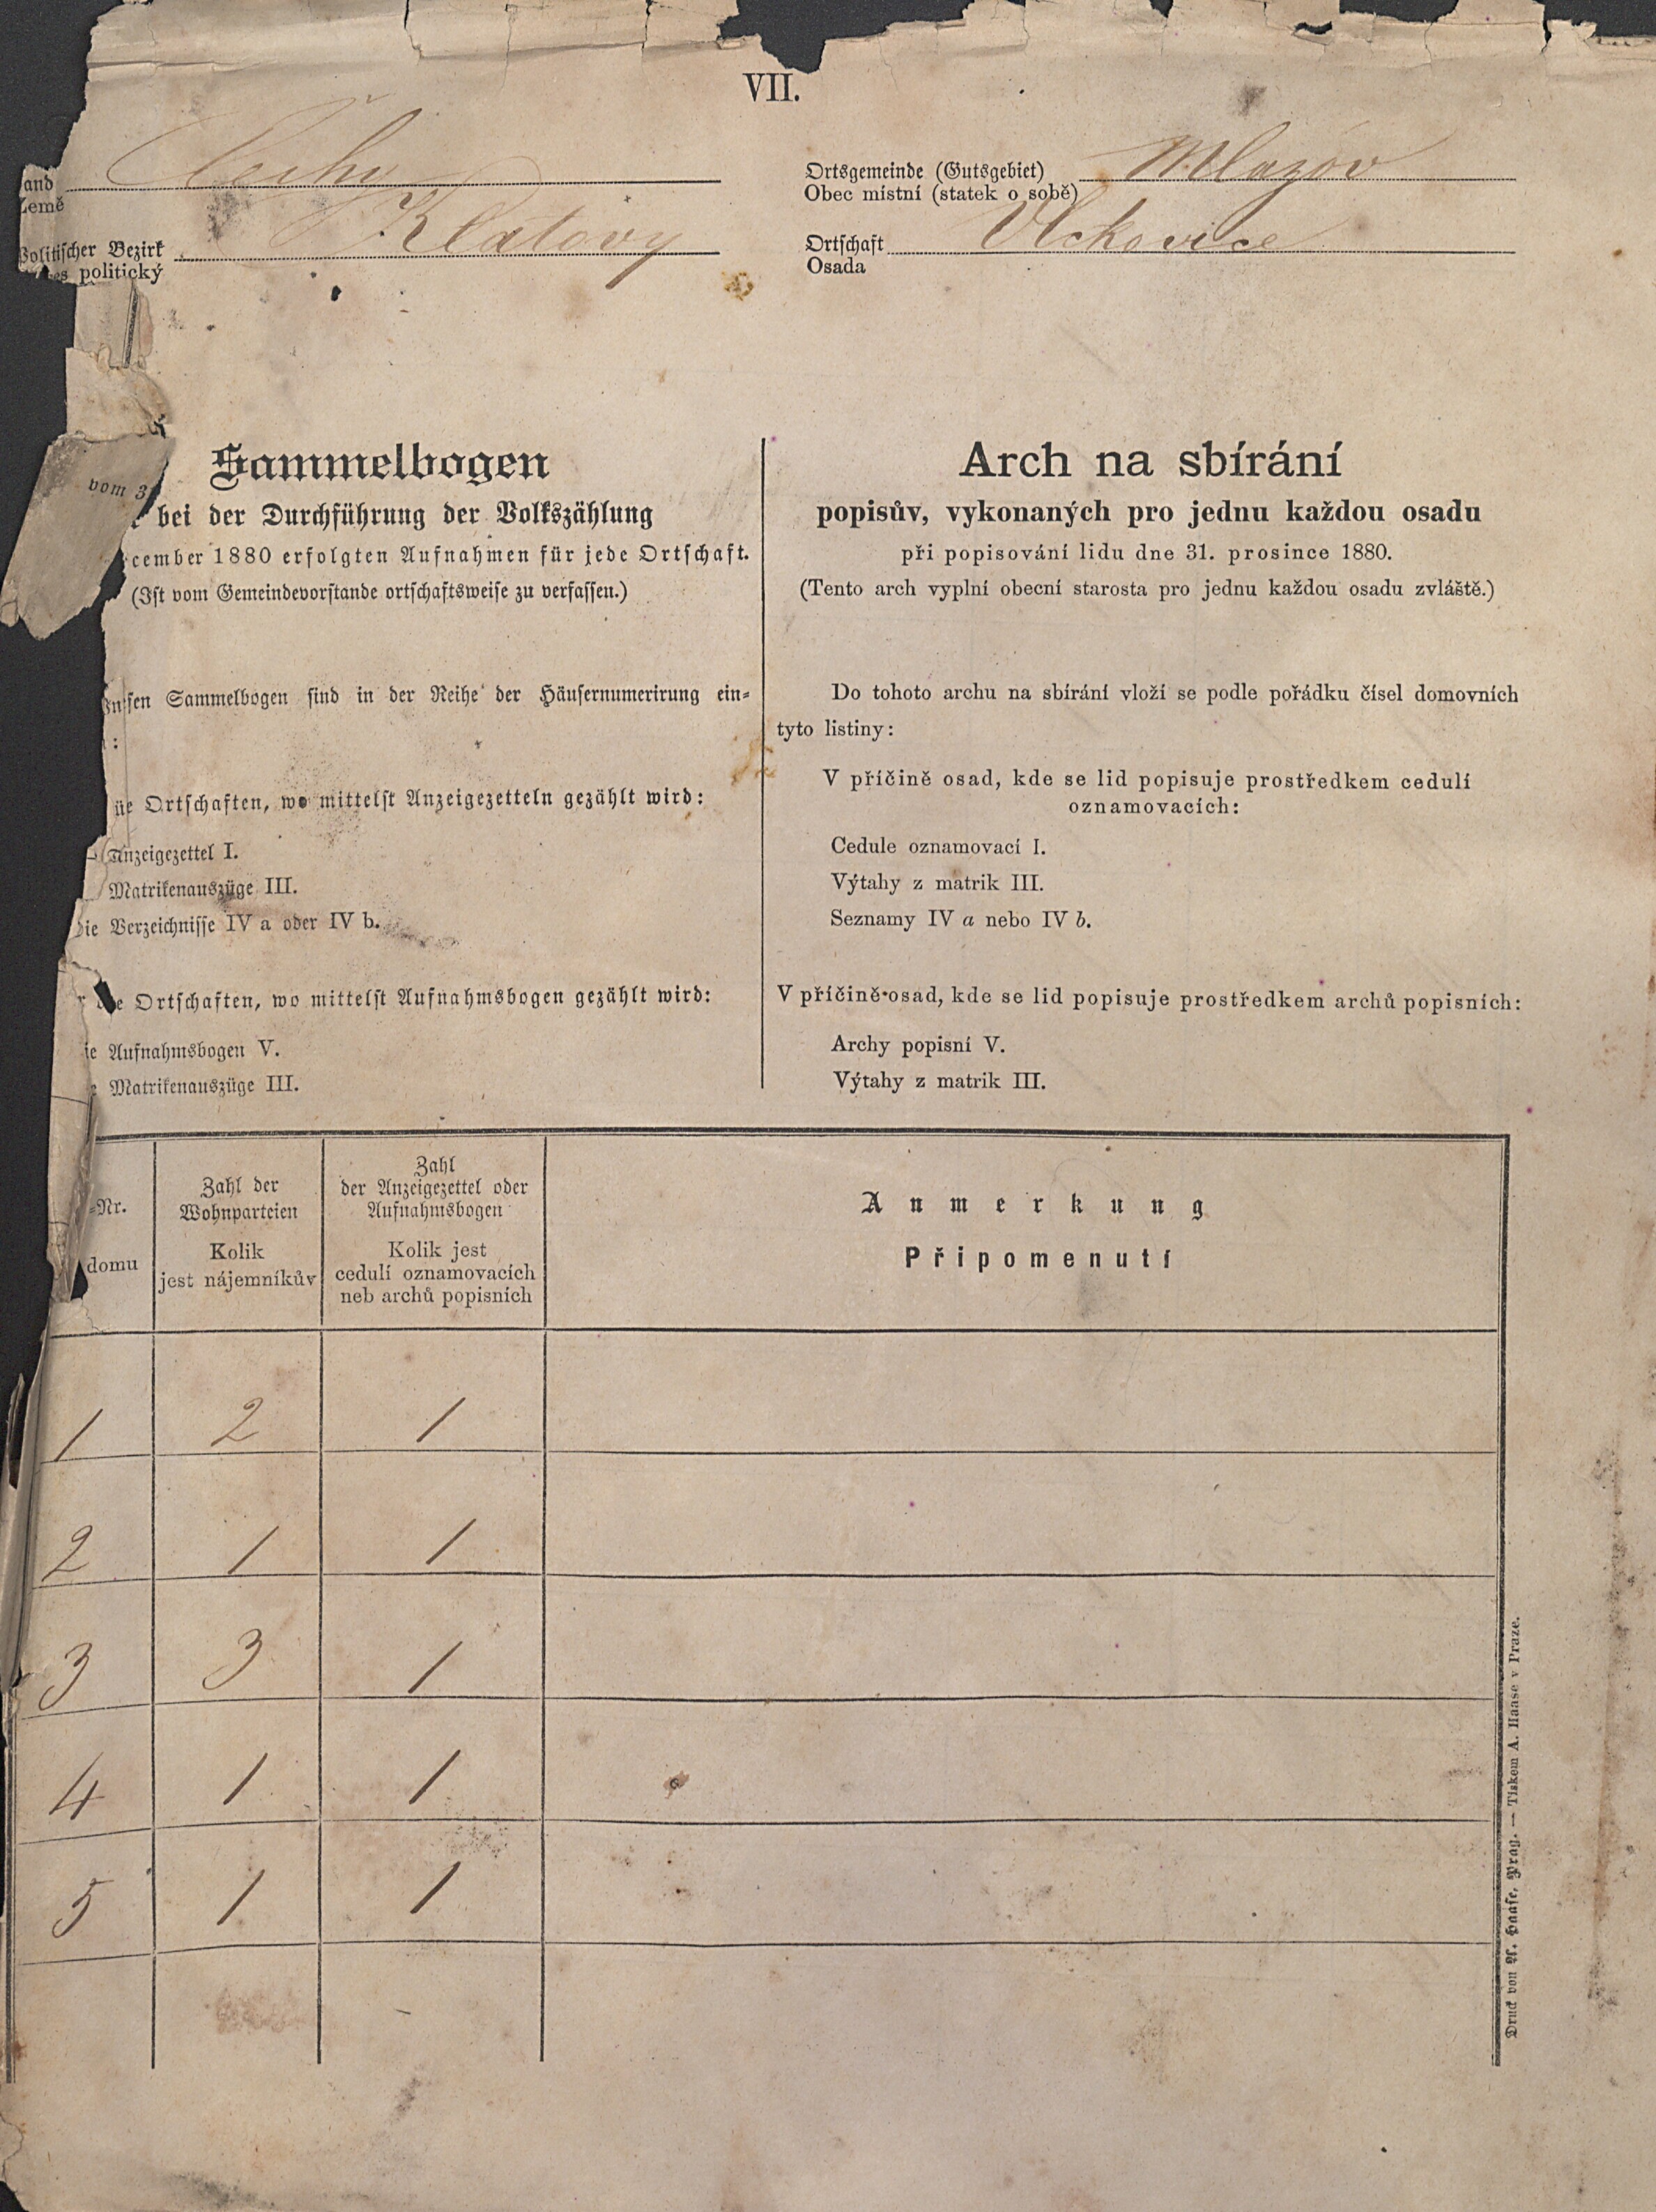 VII.
and Čechy
Země
Politischer Bezirk Klatovy
politický
Ortsgemeinde (Gutsgebiet) Mlazov
Obec místní (statek o sobě)
Ortschaft Vlckovice
Osada
Sammelbogen
vom 3
bei der Durchführung der Volkszählung
cember 1880 erfolgten Aufnahmen für jede Ortschaft.
(Ist vom Gemeindevorstande ortschaftsweise zu verfassen.)
sen Sammelbogen sind in der Reihe der Häusernumerirung ein-
:
Ortschaften, wo mittelst Anzeigezetteln gezählt wird:
Anzeigezettel I.
Matrikenauszüge III.
die Verzeichnisse IV a oder IV b.
Ortschaften, wo mittelst Aufnahmsbogen gezählt wird:
ie Aufnahmsbogen V.
Matrikenauszüge III.
Arch na sbírání
popisův, vykonaných pro jednu každou osadu
při popisování lidu dne 31. prosince 1880.
(Tento arch vyplní obecní starosta pro jednu každou osadu zvláště.)
Do tohoto archu na sbírání vloží se podle pořádku čísel domovních
tyto listiny:
V příčině osad, kde se lid popisuje prostředkem cedulí
oznamovacích:
Cedule oznamovací I.
Výtahy z matrik III.
Seznamy IV a nebo IV b.
V příčině osad, kde se lid popisuje prostředkem archů popisních:
Archy popisní V.
Výtahy z matrik III.
-Nr.
domu
Zahl der
Wohnparteien
Kolik
jest nájemníkův
Zahl
der Anzeigezettel oder
Aufnahmsbogen
Kolik jest
cedulí oznamovacích
neb archů popisních
Anmerkung
Připomenutí
1 2 1
2 1 1
3 3 1
4 1 1
5 1 1
Druck von A. Haase, Prag. — Tiskem A. Haase v Praze.